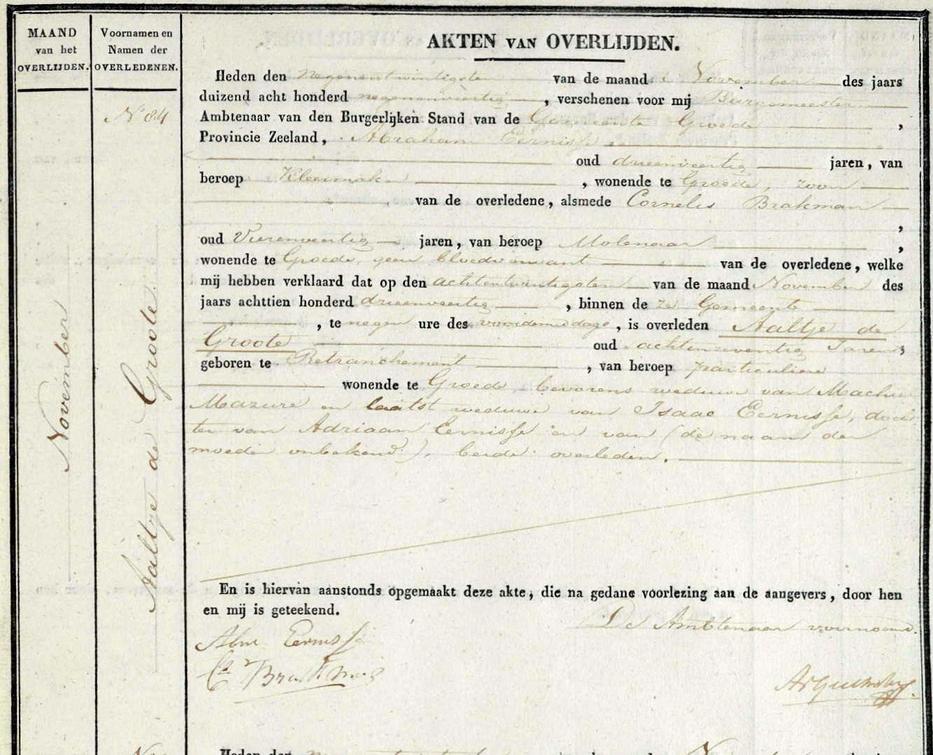 MAAND
van het
OVERLIJDEN.
Voornamen en
Namen der
OVERLEDENEN.
AKTEN VAN OVERLIJDEN.
Heden den negenentwintigste van de maand November des jaars
duizend acht honderd , verschenen voor mij Burgemeester
No 84
Ambtenaar van den Burgerlijken Stand van de Gemeente Groede ,
Provincie Zeeland, Abraham Eernisse
oud drieenveertig jaren, van
beroep Kleermaker , wonende te Groede, zoon
van de overledene, alsmede Cornelis Brakman
,
oud Vierenveertig jaren, van beroep Molenaar ,
wonende te Groede, geen bloedverwant van de overledene, welke
mij hebben verklaard dat op den achtentwintigsten van de maand November des
jaars achttien honderd drieenveertig , binnen de ze Gemeente
, te negen ure des voormiddags , is overleden Aaltje de
Groote oud achtenzeventig Jaren ,
geboren te Retranchement , van beroep particuliere
wonende te Groede bevorens weduwe van
Mazure en laatst weduwe van Isaac Eernisse, doch
ter van Adriaan Eernisse en van (de naam der
moeder onbekend), beide overleden.
November
Aaltje de Groote
En is hiervan aanstonds opgemaakt deze akte, die na gedane voorlezing aan de aangevers, door hen
en mij is geteekend.
De Ambtenaar voornoemd.
Abm Eernisse
Cs Brakman
Heden den